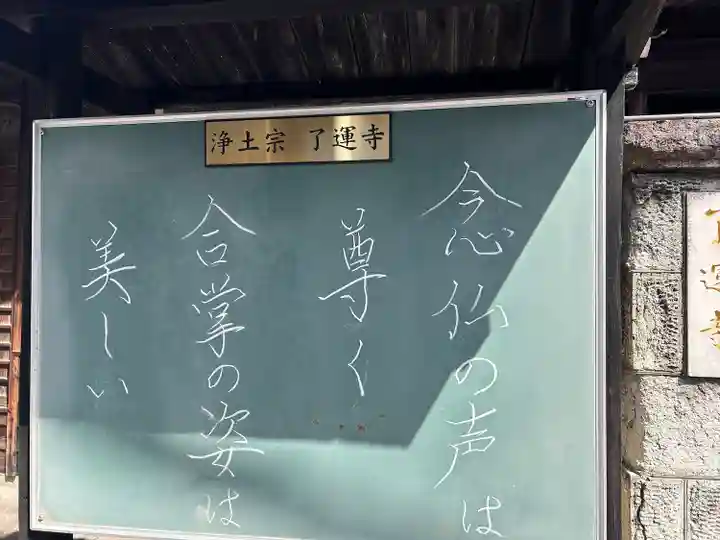 浄土宗 了運寺
念仏の声は
尊く
合掌の姿は
美しい
了運寺